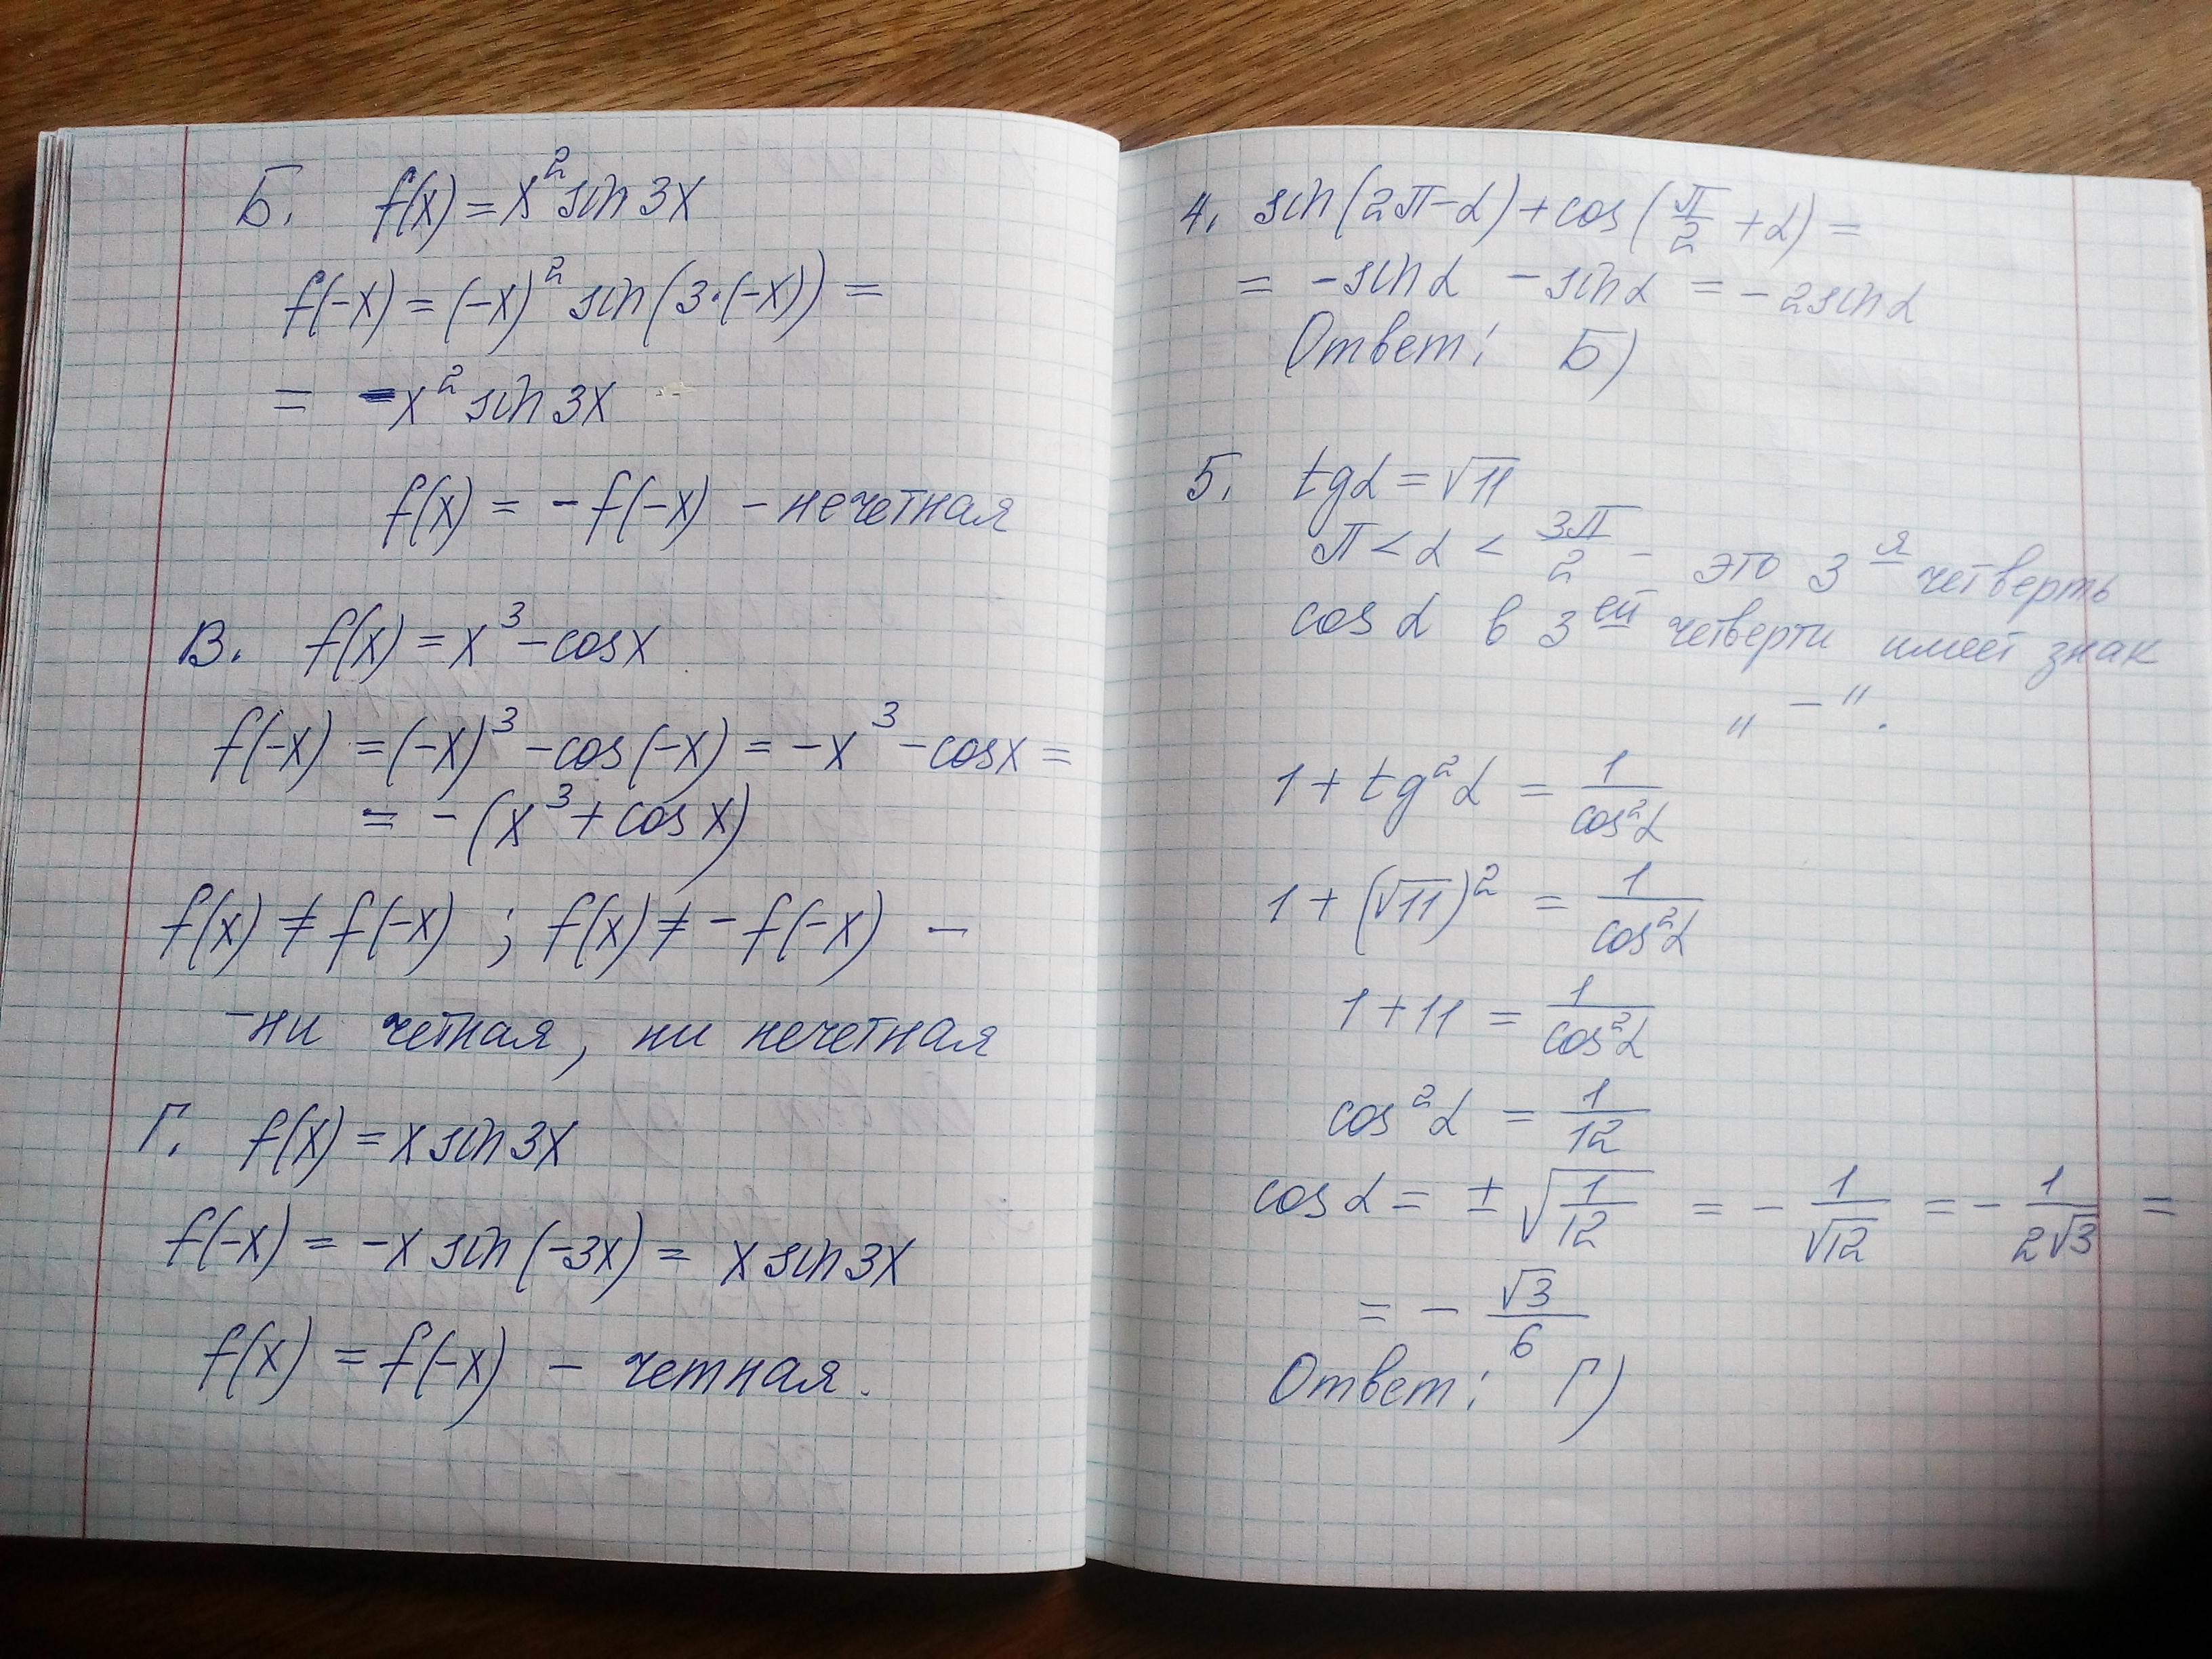 Б. f(x) = x² sin 3x
f(-x) = (-x)² sin(3·(-x)) =
= -x² sin 3x
f(x) = - f(-x) - нечетная
В. f(x) = x³ - cos x
f(-x) = (-x)³ - cos(-x) = -x³ - cos x =
= -(x³ + cos x)
f(x) ≠ f(-x) ; f(x) ≠ - f(-x) -
- ни четная, ни нечетная
Г. f(x) = x sin 3x
f(-x) = -x sin(-3x) = x sin 3x
f(x) = f(-x) - четная.
4. sin(2π-α) + cos(π/2 + α) =
= -sin α - sin α = -2 sin α
Ответ: Б)
5. tg α = √11
π < α < 3π/2 - это 3я четверть
cos α в 3ей четверти имеет знак
„ - “.
1 + tg² α = 1/cos² α
1 + (√11)² = 1/cos² α
1 + 11 = 1/cos² α
cos² α = 1/12
cos α = ± √(1/12) = - 1/√12 = - 1/(2√3) =
= - √3/6
Ответ: Г)